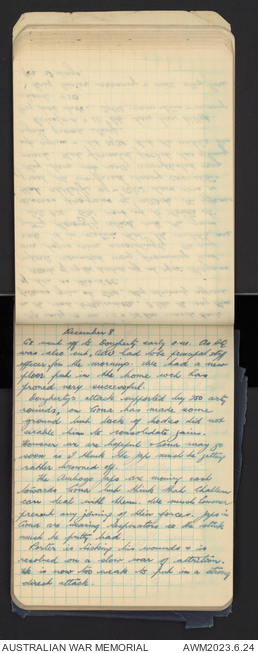 December 8
GC went off to Dougherty early a.m. As DC
was also out, ADC had to be principal staff
officer for the morning. We had a new
floor put in the home wch has
proved very successful.
Dougherty's attack supported by 700 arty
rounds, on Gona has made some
ground but lack of bodies did not
enable him to consolidate gains.
However we are hopeful & Gona may go
soon as I think the Jap must be getting
rather browned off.
The Amboga Japs are moving east
towards Gona but think that Challen
can deal with them. We must however
prevent any joining of their forces. Japs in
Gona are wearing respirators so the stink
must be pretty bad.
Porter is licking his wounds & is
resolved on a slow war of attrition.
He is now too weak to put in a strong
direct attack.
AUSTRALIAN WAR MEMORIAL
AWM2023.6.24